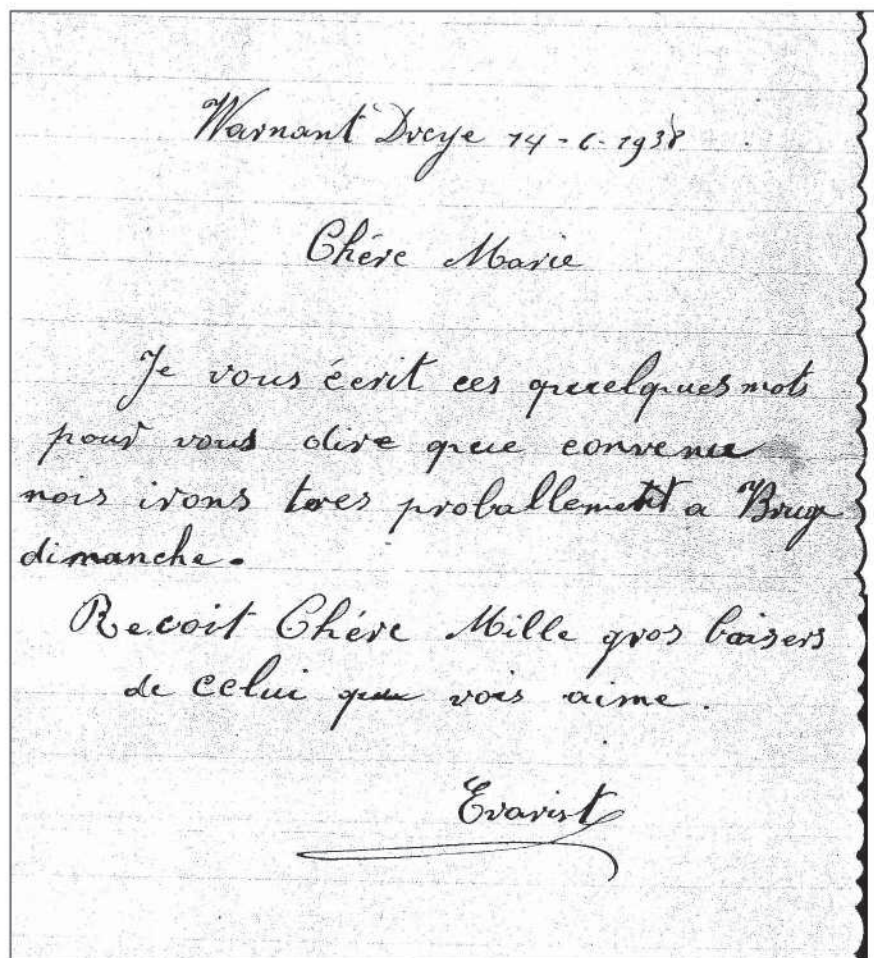 Warnant Dreye 14-6-1938
Chére Marie
Je vous écrit ces quelques mots
pour vous dire que convenu
nois irons tres proballement a Bruge
dimanche.
Recoit Chére Mille gros baisers
de celui que vois aime.
Evarist